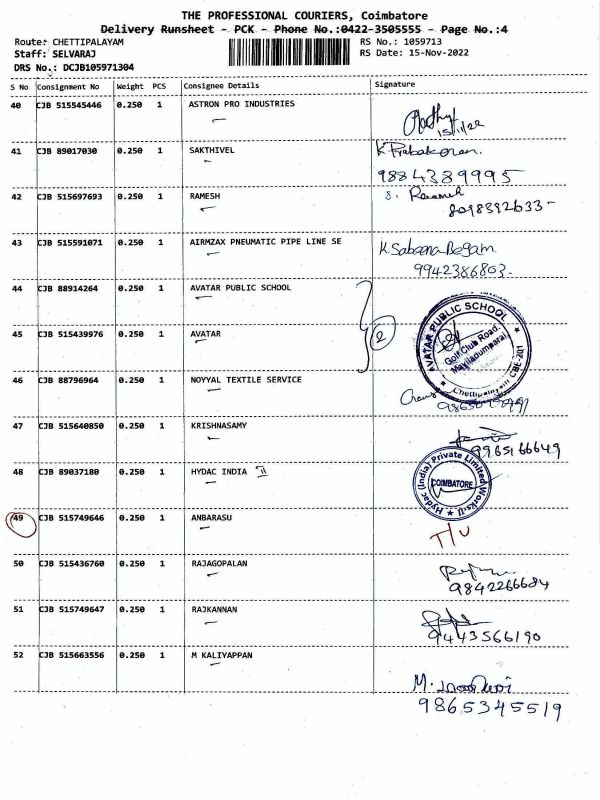 THE PROFESSIONAL COURIERS, Coimbatore
Delivery Runsheet - PCK - Phone No.:0422-3505555 - Page No.:4
Route: CHETTIPALAYAM RS No.: 1059713
Staff: SELVARAJ RS Date: 15-Nov-2022
DRS No.: DCJB105971304
S No Consignment No Weight PCS Consignee Details Signature
40 CJB 515545446 0.250 1 ASTRON PRO INDUSTRIES
15/11/22
41 CJB 89017030 0.250 1 SAKTHIVEL K. Prabakaran.
9884389995
42 CJB 515697693 0.250 1 RAMESH S. Ramesh
8098392633-
43 CJB 515591071 0.250 1 AIRMZAX PNEUMATIC PIPE LINE SE K. Sabeena Begam.
9942386803-
44 CJB 88914264 0.250 1 AVATAR PUBLIC SCHOOL
2
AVATAR PUBLIC SCHOOL
Golf Club Road,
Chettipalayam CBE-201
45 CJB 515439976 0.250 1 AVATAR
46 CJB 88796964 0.250 1 NOYYAL TEXTILE SERVICE
47 CJB 515640850 0.250 1 KRISHNASAMY
9965166649
48 CJB 89037180 0.250 1 HYDAC INDIA II
Hydac (India) Private Limited Works-II
COIMBATORE
49 CJB 515749646 0.250 1 ANBARASU T/U
50 CJB 515436760 0.250 1 RAJAGOPALAN
9842266684
51 CJB 515749647 0.250 1 RAJKANNAN
9443566190
52 CJB 515663556 0.250 1 M KALIYAPPAN
9865345519